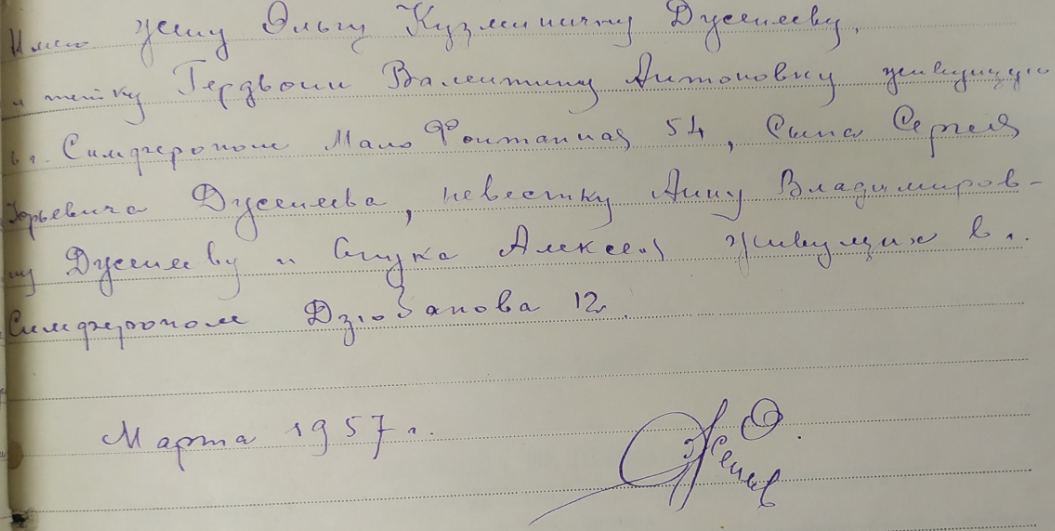 Имею жену Ольгу Кузминичну Дусемеву,
и тетку Гердвоин Валентину Антоновну живущую
в г. Симферополе Мало Фонтанная 54, Сына Сергея
Юрьевича Дусемева, невестку Анну Владимиров-
ну Дусемеву и внука Алексея живущих в г.
Симферополе Дзюбанова 12.
Марта 1957 г.